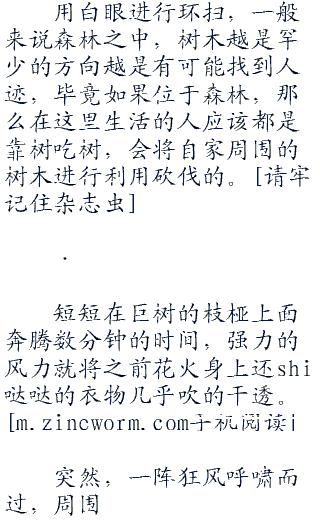 用白眼进行环扫，一般
来说森林之中，树木越是罕
少的方向越是有可能找到人
迹，毕竟如果位于森林，那
么在这里生活的人应该都是
靠树吃树，会将自家周围的
树木进行利用砍伐的。[请牢
记住杂志虫]
.
短短在巨树的枝桠上面
奔腾数分钟的时间，强力的
风力就将之前花火身上还shi
哒哒的衣物几乎吹的干透。
[m.zincworm.com手机阅读]
突然，一阵狂风呼啸而
过，周围